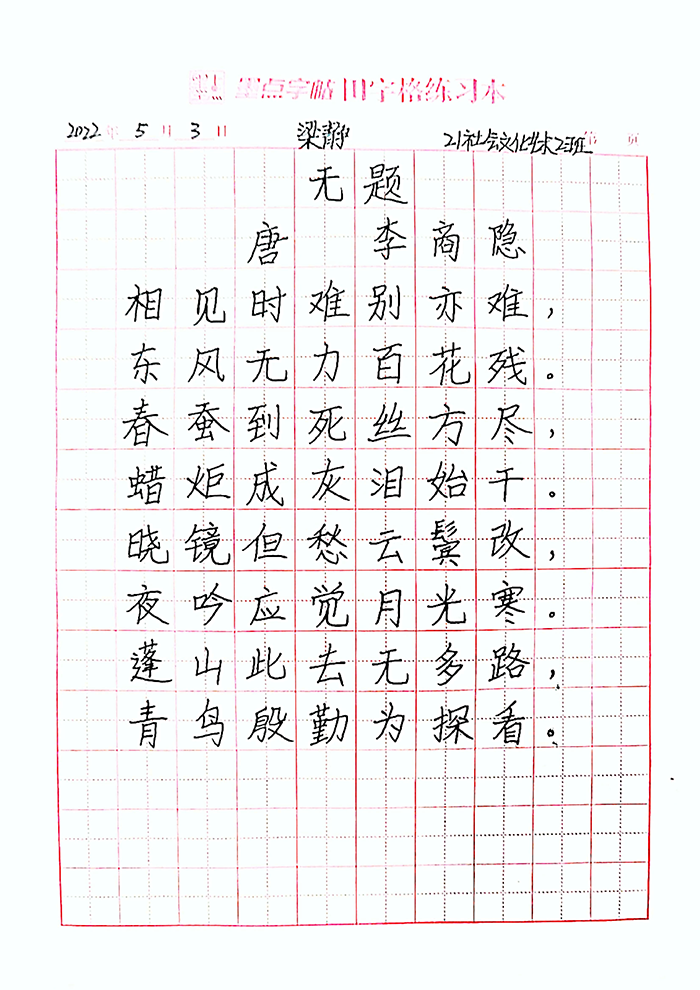 墨点字帖 田字格练习本
2022年 5月 3日 梁静 21社会文化艺术2班 第 页
无题
唐 李商隐
相见时难别亦难，
东风无力百花残。
春蚕到死丝方尽，
蜡炬成灰泪始干。
晓镜但愁云鬓改，
夜吟应觉月光寒。
蓬山此去无多路，
青鸟殷勤为探看。